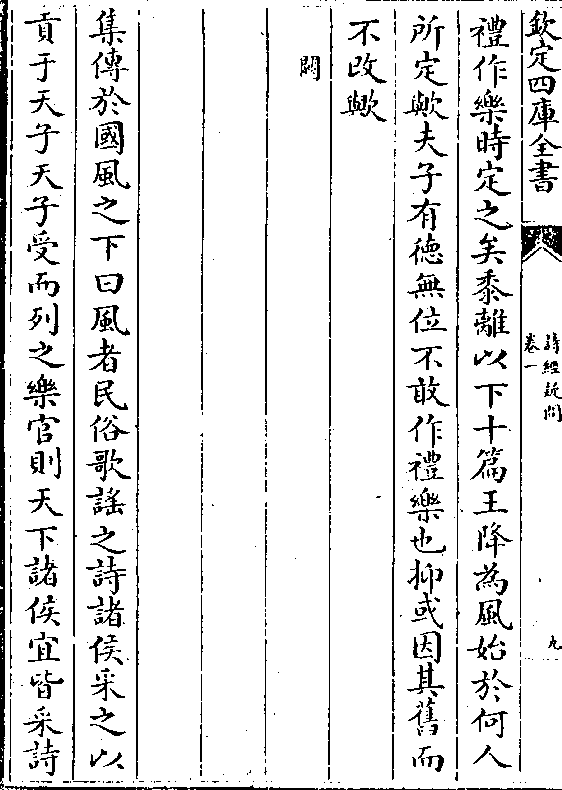 欽定四庫全書
詩經疑問
卷一
九
禮作樂時定之矣黍離以下十篇王降為風始於何人
所定歟夫子有德無位不敢作禮樂也抑或因其舊而
不改歟
闕
集傳於國風之下曰風者民俗歌謡之詩諸侯采之以
貢于天子天子受而列之樂官則天下諸侯宜皆采詩